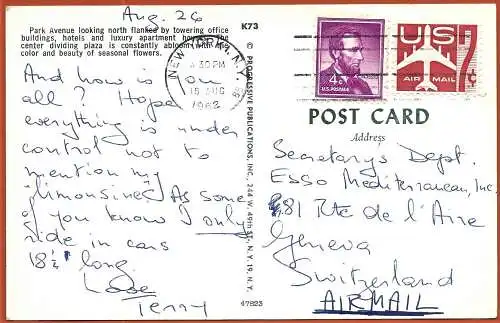 Aug. 26
Park Avenue looking north flanked by towering office
buildings, hotels and luxury apartment houses. The
center dividing plaza is constantly abloom with the
color and beauty of seasonal flowers.
K73
And how is you
all? Hope
everything is under
control not to
mention my
"limousines" As some
of you know I only
ride in cars
18½' long.
Love
Terry
© PROGRESSIVE PUBLICATIONS, INC., 244 W. 49th ST., N. Y. 19, N. Y.
47823
NEW YORK, N.Y.
30 PM
AUG
1962
4¢
U.S. POSTAGE
US
AIR MAIL
7¢
POST CARD
Address
Secretarys Dept.
Esso Mediterranean, Inc.
81 Rte de l'Aire
Geneva
Switzerland
AIRMAIL